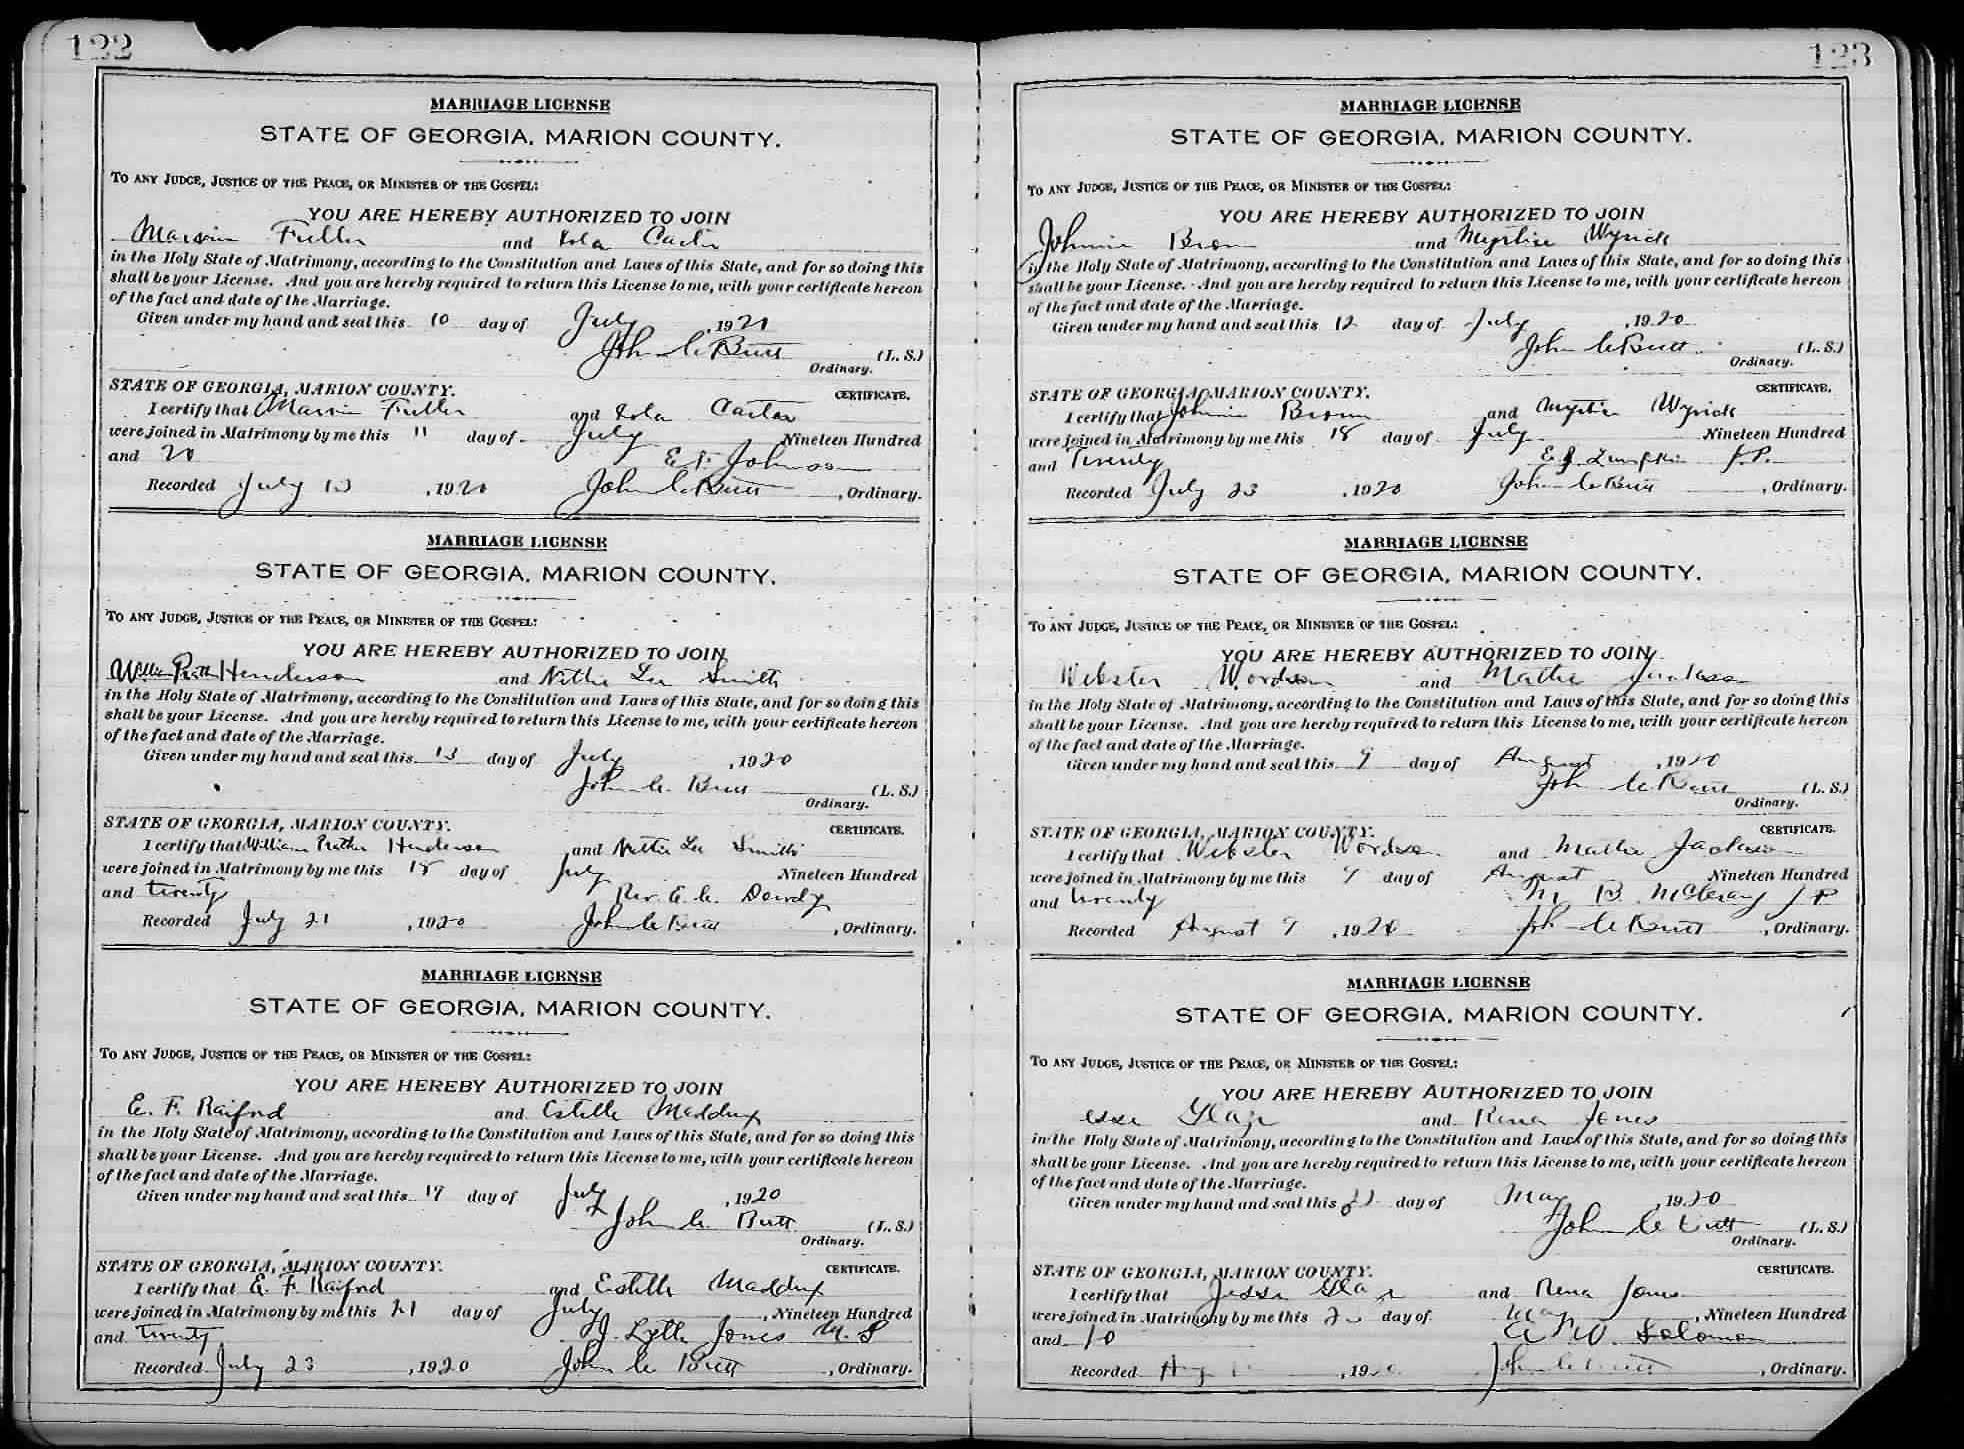 122
MARRIAGE LICENSE
STATE OF GEORGIA, MARION COUNTY.
TO ANY JUDGE, JUSTICE OF THE PEACE, OR MINISTER OF THE GOSPEL:
YOU ARE HEREBY AUTHORIZED TO JOIN
Marvin Fuller and Lola Carter
in the Holy State of Matrimony, according to the Constitution and Laws of this State, and for so doing this
shall be your License. And you are hereby required to return this License to me, with your certificate hereon
of the fact and date of the Marriage.
Given under my hand and seal this 10 day of July, 1920
John C Butt (L. S.)
Ordinary.
STATE OF GEORGIA, MARION COUNTY. CERTIFICATE.
I certify that Marvin Fuller and Lola Carter
were joined in Matrimony by me this 11 day of July Nineteen Hundred
and 20 E. F. Johnson
Recorded July 13, 1920 John C Butt, Ordinary.
MARRIAGE LICENSE
STATE OF GEORGIA, MARION COUNTY.
TO ANY JUDGE, JUSTICE OF THE PEACE, OR MINISTER OF THE GOSPEL:
YOU ARE HEREBY AUTHORIZED TO JOIN
William Prather Henderson and Nettie Lee Smith
in the Holy State of Matrimony, according to the Constitution and Laws of this State, and for so doing this
shall be your License. And you are hereby required to return this License to me, with your certificate hereon
of the fact and date of the Marriage.
Given under my hand and seal this 13 day of July, 1920
John C. Butt (L. S.)
Ordinary.
STATE OF GEORGIA, MARION COUNTY. CERTIFICATE.
I certify that William Prather Henderson and Nettie Lee Smith
were joined in Matrimony by me this 18 day of July Nineteen Hundred
and twenty Rev. E. C. Dowdy
Recorded July 21, 1920 John C Butt, Ordinary.
MARRIAGE LICENSE
STATE OF GEORGIA, MARION COUNTY.
TO ANY JUDGE, JUSTICE OF THE PEACE, OR MINISTER OF THE GOSPEL:
YOU ARE HEREBY AUTHORIZED TO JOIN
E. F. Raiford and Estelle Maddux
in the Holy State of Matrimony, according to the Constitution and Laws of this State, and for so doing this
shall be your License. And you are hereby required to return this License to me, with your certificate hereon
of the fact and date of the Marriage.
Given under my hand and seal this 17 day of July, 1920
John C. Butt (L. S.)
Ordinary.
STATE OF GEORGIA, MARION COUNTY. CERTIFICATE.
I certify that E. F. Raiford and Estelle Maddux
were joined in Matrimony by me this 21 day of July, Nineteen Hundred
and twenty J. Lytle Jones M. G
Recorded July 23, 1920 John C Butt, Ordinary.
123
MARRIAGE LICENSE
STATE OF GEORGIA, MARION COUNTY.
TO ANY JUDGE, JUSTICE OF THE PEACE, OR MINISTER OF THE GOSPEL:
YOU ARE HEREBY AUTHORIZED TO JOIN
Johnnie Brown and Myrtice Wyrick
in the Holy State of Matrimony, according to the Constitution and Laws of this State, and for so doing this
shall be your License. And you are hereby required to return this License to me, with your certificate hereon
of the fact and date of the Marriage.
Given under my hand and seal this 12 day of July, 1920
John C Butt (L. S.)
Ordinary.
STATE OF GEORGIA, MARION COUNTY. CERTIFICATE.
I certify that Johnnie Brown and Myrtice Wyrick
were joined in Matrimony by me this 18 day of July Nineteen Hundred
and Twenty E. J. Lumpkin J. P.
Recorded July 23, 1920 John C Butt, Ordinary.
MARRIAGE LICENSE
STATE OF GEORGIA, MARION COUNTY.
TO ANY JUDGE, JUSTICE OF THE PEACE, OR MINISTER OF THE GOSPEL:
YOU ARE HEREBY AUTHORIZED TO JOIN
Webster Wordson and Mattie Jackson
in the Holy State of Matrimony, according to the Constitution and Laws of this State, and for so doing this
shall be your License. And you are hereby required to return this License to me, with your certificate hereon
of the fact and date of the Marriage.
Given under my hand and seal this 9 day of August, 1920
John C Butt (L. S.)
Ordinary.
STATE OF GEORGIA, MARION COUNTY. CERTIFICATE.
I certify that Webster Wordson and Mattie Jackson
were joined in Matrimony by me this 9 day of August Nineteen Hundred
and twenty M. B. McCrary J P
Recorded August 9, 1920 John C Butt, Ordinary.
MARRIAGE LICENSE
STATE OF GEORGIA, MARION COUNTY.
TO ANY JUDGE, JUSTICE OF THE PEACE, OR MINISTER OF THE GOSPEL:
YOU ARE HEREBY AUTHORIZED TO JOIN
esse and Rena Jones
in the Holy State of Matrimony, according to the Constitution and Laws of this State, and for so doing this
shall be your License. And you are hereby required to return this License to me, with your certificate hereon
of the fact and date of the Marriage.
Given under my hand and seal this day of May, 1920
John C Butt (L. S.)
Ordinary.
STATE OF GEORGIA, MARION COUNTY. CERTIFICATE.
I certify that Jesse and Rena Jones
were joined in Matrimony by me this day of May, Nineteen Hundred
and W. Solomon
Recorded Aug, 1920 John C Butt, Ordinary.